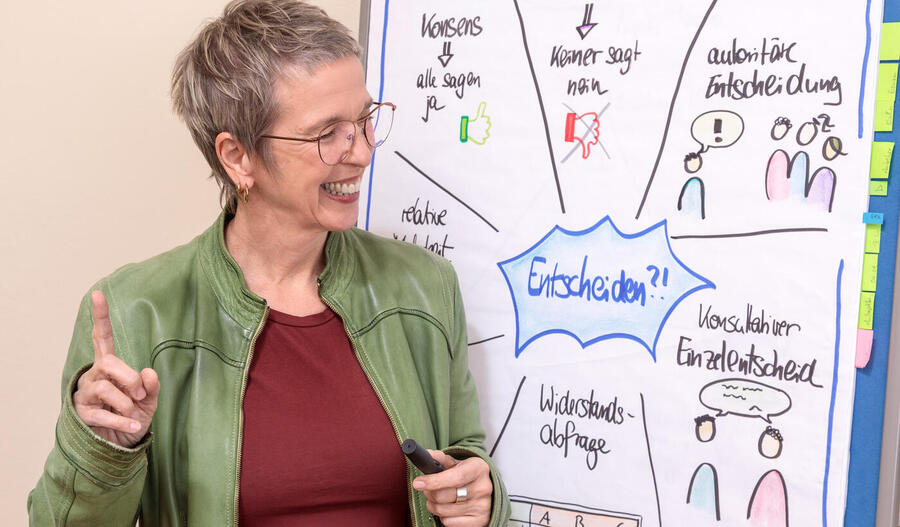 Konsens
alle sagen
ja
Keiner sagt
nein
autoritäre
Entscheidung
!
z
relative
Entscheiden?!
Konsultativer
Einzelentscheid
Widerstands-
abfrage
A B C